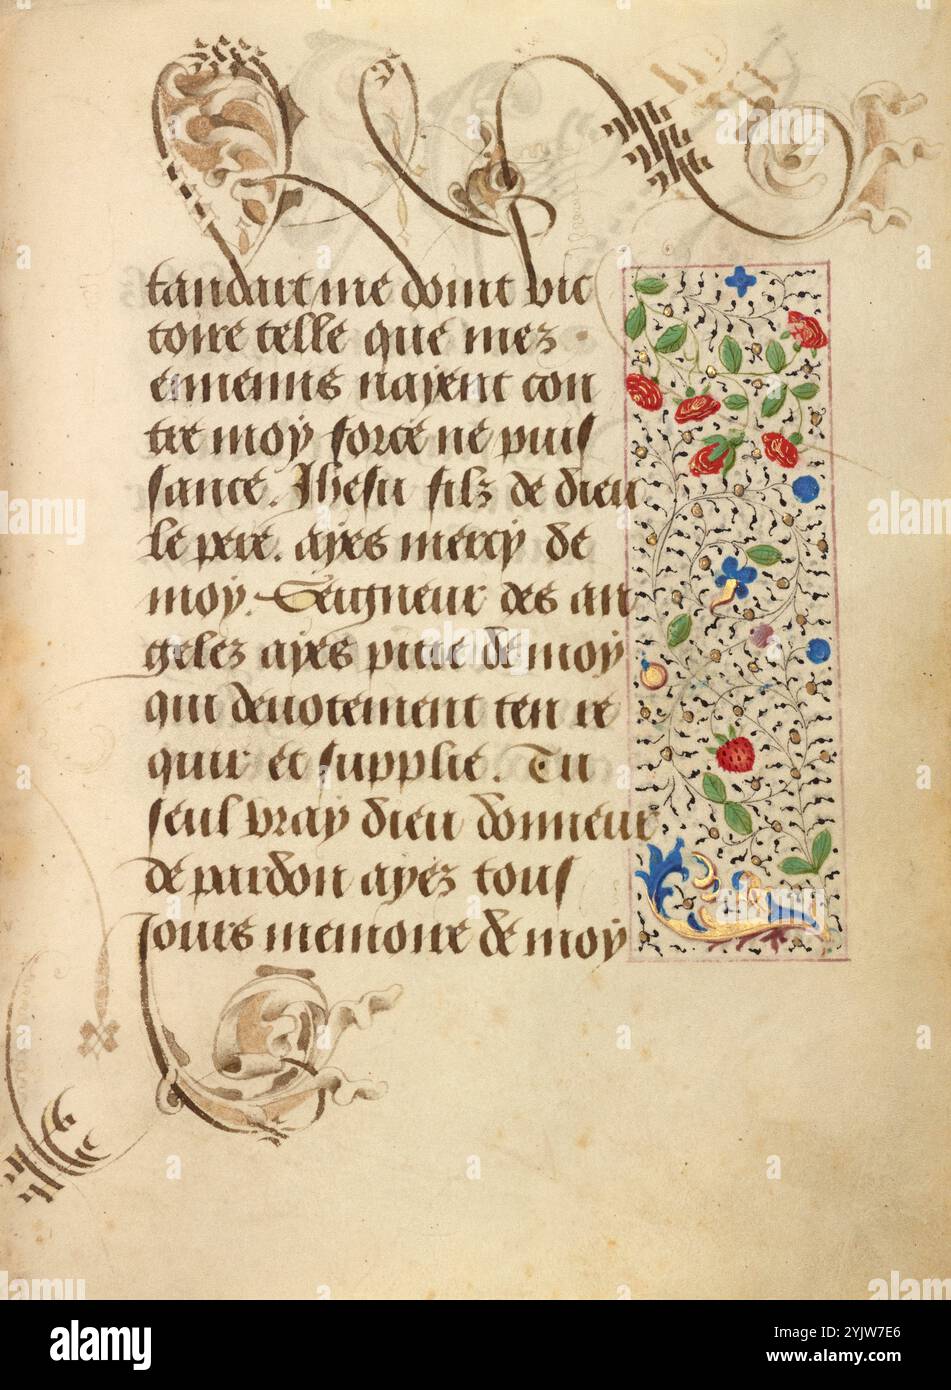 tandart me doint vic
toire telle que mez
ennemis nayent con
tre moy force ne puis
sance. Jhesu filz de dieu
le pere. ayes mercy de
moy. Seigneur des an
gelez ayes pitie de moy
qui deuotement ten re
quir et supplie. Tu
seul vray dieu donneur
de pardon ayez tous
iours memoire de moy
alamy
Image ID: 2YJW7E6
www.alamy.com